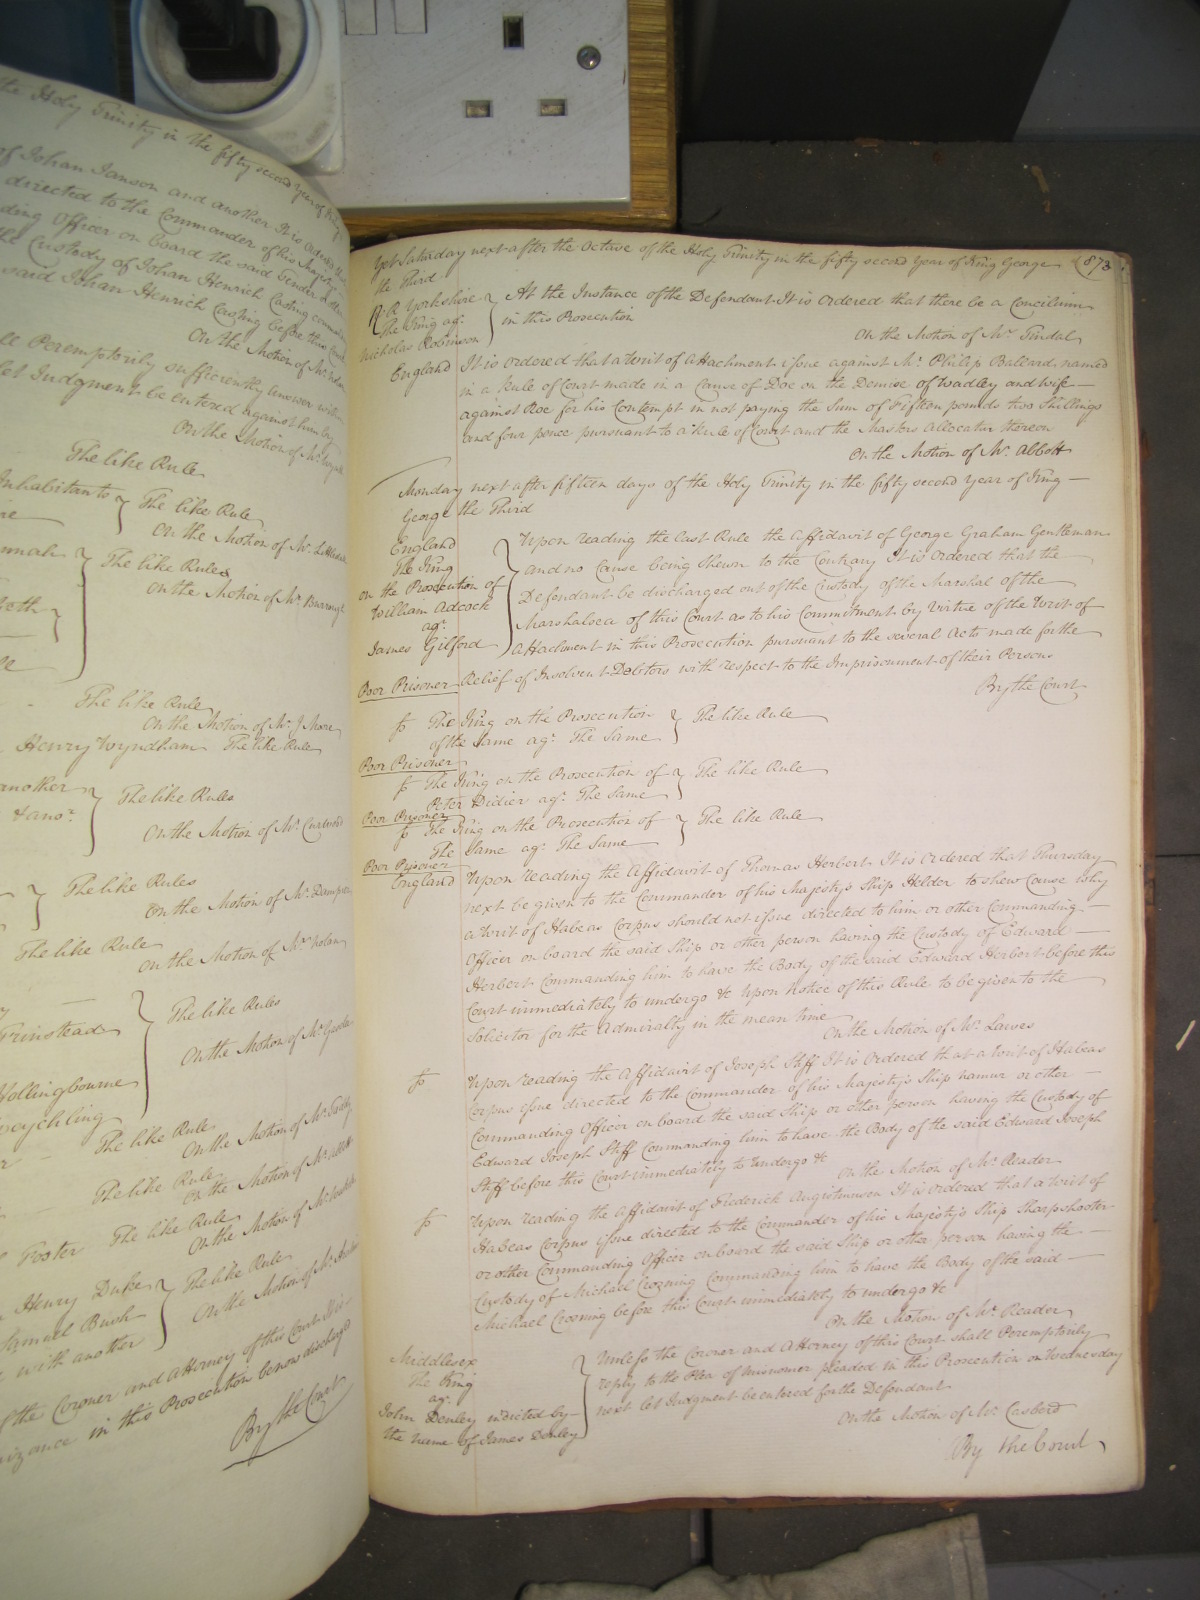 the Holy Trinity in the fifty second year of King
of Johan Janson and another It is ordered that
directed to the Commander of his Majestys
ding Officer on board the said Tender
the Custody of Johan Henrich Casting
said Johan Henrich Casting before this Court
On the Motion of Mr.
ll Peremptorily sufficiently answer within
let Judgment be entered against him by
On the Motion of Mr.
The like Rule
Inhabitants The like Rule
On the Motion of Mr.
nnah The like Rules
On the Motion of Mr. Burrough
The like Rule
On the Motion of Mr. J Moore
Henry Wyndham The like Rule
another The like Rules
& anor.
On the Motion of Mr. Curwood
The like Rules
On the Motion of Mr. Dampier
The like Rule
On the Motion of Mr. Nolan
The like Rules
Grinstead
On the Motion of Mr.
Hollingbourne
The like Rule
On the Motion of Mr.
The like Rule
On the Motion of Mr. Abbott
Foster The like Rule
On the Motion of Mr.
Henry Duke The like Rule
Samuel Bush On the Motion of Mr.
with another
of the Coroner and Attorney of this Court
izance in this Prosecution be now discharged
By the Court
Yet Saturday next after the Octave of the Holy Trinity in the fifty second Year of King George 873
the Third
R.R Yorkshire
The King agt.
Nicholas Robinson
At the Instance of the Defendant It is Ordered that there be a Concilium
in this Prosecution
On the Motion of Mr. Tindal
England It is ordered that a Writ of attachment issue against Mr. Philip Ballard named
in a Rule of Court made in a Cause of Doe on the Demise of Wadley and Wife
against Roe for his Contempt in not paying the Sum of Fifteen pounds two Shillings
and four pence pursuant to a Rule of Court and the Masters allocatur thereon
On the Motion of Mr. Abbott
Monday next after fifteen days of the Holy Trinity in the fifty second year of King
George the Third
England
The King
on the Prosecution of
William Adcock
agt.
James Gilford
Poor Prisoner
Upon reading the Last Rule the Affidavit of George Graham Gentleman
and no Cause being Shewn to the Contrary It is Ordered that the
Defendant be discharged out of the Custody of the Marshal of the
Marshalsea of this Court as to his Commitment by virtue of the Writ of
attachment in this Prosecution pursuant to the several Acts made for the
Relief of Insolvent Debtors with respect to the Imprisonment of their Persons
By the Court
fs The King on the Prosecution
of the Same agt. The Same The like Rule
Poor Prisoner
fs The King on the Prosecution of
Peter Didier agt. The Same The like Rule
Poor Prisoner
fs The King on the Prosecution of
The Same agt. The Same The like Rule
Poor Prisoner
England Upon reading the Affidavit of Thomas Herbert It is Ordered that Thursday
next be given to the Commander of his Majestys Ship Helder to shew Cause why
a Writ of Habeas Corpus should not issue directed to him or other Commanding
Officer on board the said Ship or other person having the Custody of Edward
Herbert Commanding him to have the Body of the said Edward Herbert before this
Court immediately to undergo &c Upon Notice of this Rule to be given to the
Solicitor for the Admiralty in the mean time
On the Motion of Mr. Lawes
fs Upon reading the Affidavit of Joseph Stiff It is Ordered that a Writ of Habeas
Corpus issue directed to the Commander of his Majestys Ship Namur or other
Commanding Officer on board the said Ship or other person having the Custody of
Edward Joseph Stiff Commanding him to have the Body of the said Edward Joseph
Stiff before this Court immediately to undergo &c
On the Motion of Mr. Reader
fs Upon reading the Affidavit of Frederick It is ordered that a Writ of
Habeas Corpus issue directed to the Commander of his Majestys Ship Sharpshooter
or other Commanding Officer on board the said Ship or other person having the
Custody of Michael Crosning Commanding him to have the Body of the said
Michael Crosning before this Court immediately to undergo &c
On the Motion of Mr. Reader
Middlesex
The King
agt.
John Denley indicted by
the name of James Denley
Unless the Coroner and Attorney of this Court shall Peremptorily
reply to the Plea of Misnomer pleaded in this Prosecution on Wednesday
next let Judgment be entered for the Defendant
On the Motion of Mr. Casberd
By the Court